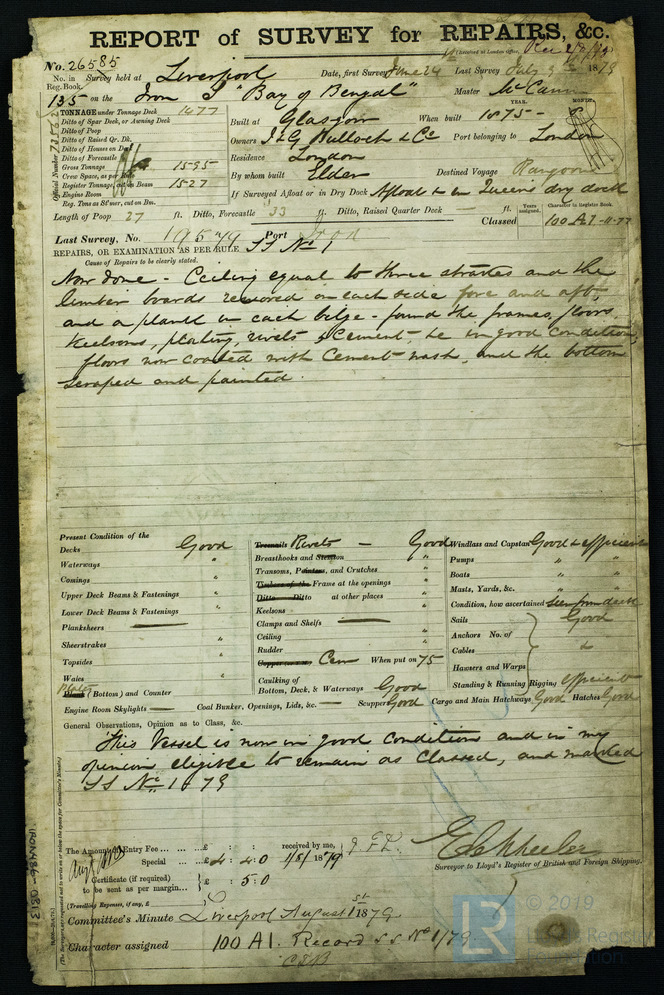 REPORT of SURVEY for REPAIRS, &c.
No. 26585
(Received at London Office,
No. in Reg. Book.
Survey held at Liverpool Date, first Survey June 24 Last Survey July 9th 1879
135 on the Iron S "Bay of Bengal" Master McCann
TONNAGE under Tonnage Deck 1477
Ditto of Spar Deck, or Awning Deck
Ditto of Poop
Ditto of Raised Qr. Dk.
Ditto of Houses on Deck
Ditto of Forecastle
Gross Tonnage 1595
Crew Space, as per Rule
Register Tonnage, cut on Beam 1527
Engine Room
Reg. Tons as St'mer, cut on Bm.
Official Number
YEAR. MONTH.
Built at Glasgow When built 1875 -
Owners J & G Bulloch & Co Port belonging to London
Residence London
By whom built Elder Destined Voyage Rangoon
If Surveyed Afloat or in Dry Dock Afloat & in Queens dry dock
Length of Poop 27 ft. Ditto, Forecastle 33 ft. Ditto, Raised Quarter Deck ft.
Classed
Years assigned.
Character in Register Book.
100 A1 -11-77
Last Survey, No. 19579 Port
REPAIRS, OR EXAMINATION AS PER RULE SS No 1
Cause of Repairs to be clearly stated.
Now done - Ceiling equal to three strakes and the
limber boards removed on each side fore and aft,
and a plank in each bilge - found the frames, floors,
Keelsons, plating, rivets & Cement, &c in good condition,
floors now coated with Cement wash, and the bottom
scraped and painted.
Present Condition of the
Decks Good
Waterways "
Comings "
Upper Deck Beams & Fastenings "
Lower Deck Beams & Fastenings "
Planksheers
Sheerstrakes "
Topsides "
Wales "
Bottom) and Counter
Engine Room Skylights
Treenails Rivets - Good
Breasthooks and Stemson "
Transoms, Pointers, and Crutches "
Timbers of the Frame at the openings "
Ditto Ditto at other places "
Keelsons "
Clamps and Shelfs
Ceiling "
Rudder "
Cem When put on 75
Caulking of Bottom, Deck, & Waterways Good
Coal Bunker, Openings, Lids, &c. Scuppers Good
Windlass and Capstan Good & efficient
Pumps " "
Boats " "
Masts, Yards, &c. " "
Condition, how ascertained Seen from deck
Sails Good
Anchors No. of
Cables "
Hawsers and Warps
Standing & Running Rigging efficient
Cargo and Main Hatchways Good Hatches Good
General Observations, Opinion as to Class, &c.
This Vessel is now in good condition and in my
opinion eligible to remain as Classed, and marked
SS No 1 879
The Amount of Entry Fee £ : : received by me,
Special £4 : 4 : 0 1/8/1879
Certificate (if required) to be sent as per margin £ : 5 : 0
(Travelling Expenses, if any, £
E de Wheeler
Surveyor to Lloyd's Register of British and Foreign Shipping.
Committee's Minute Liverpool August 1st 1879
Character assigned 100 A1. Record SS No 1/79
IRON486-0313
© 2019
Lloyd's Register
Foundation
LR